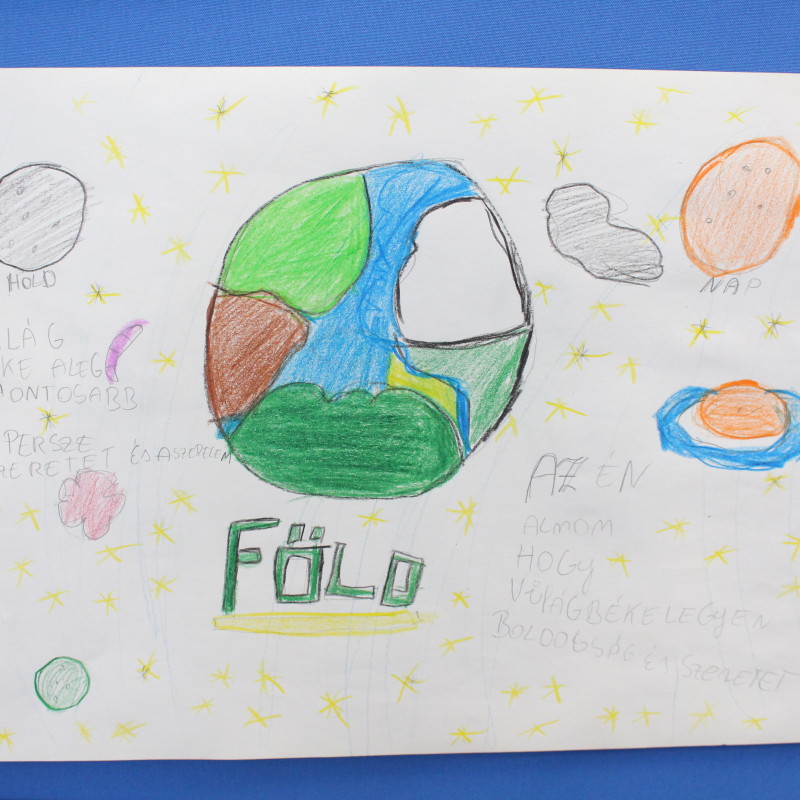 HOLD
NAP
LÁG
KE ALEG
ONTOSABB
PERSZE
ERETET ÉS A SZERELEM
FÖLD
AZ ÉN
ALMOM
HOGY
VILÁGBÉKE LEGYEN
BOLDOGSÁG ÉS SZERETET